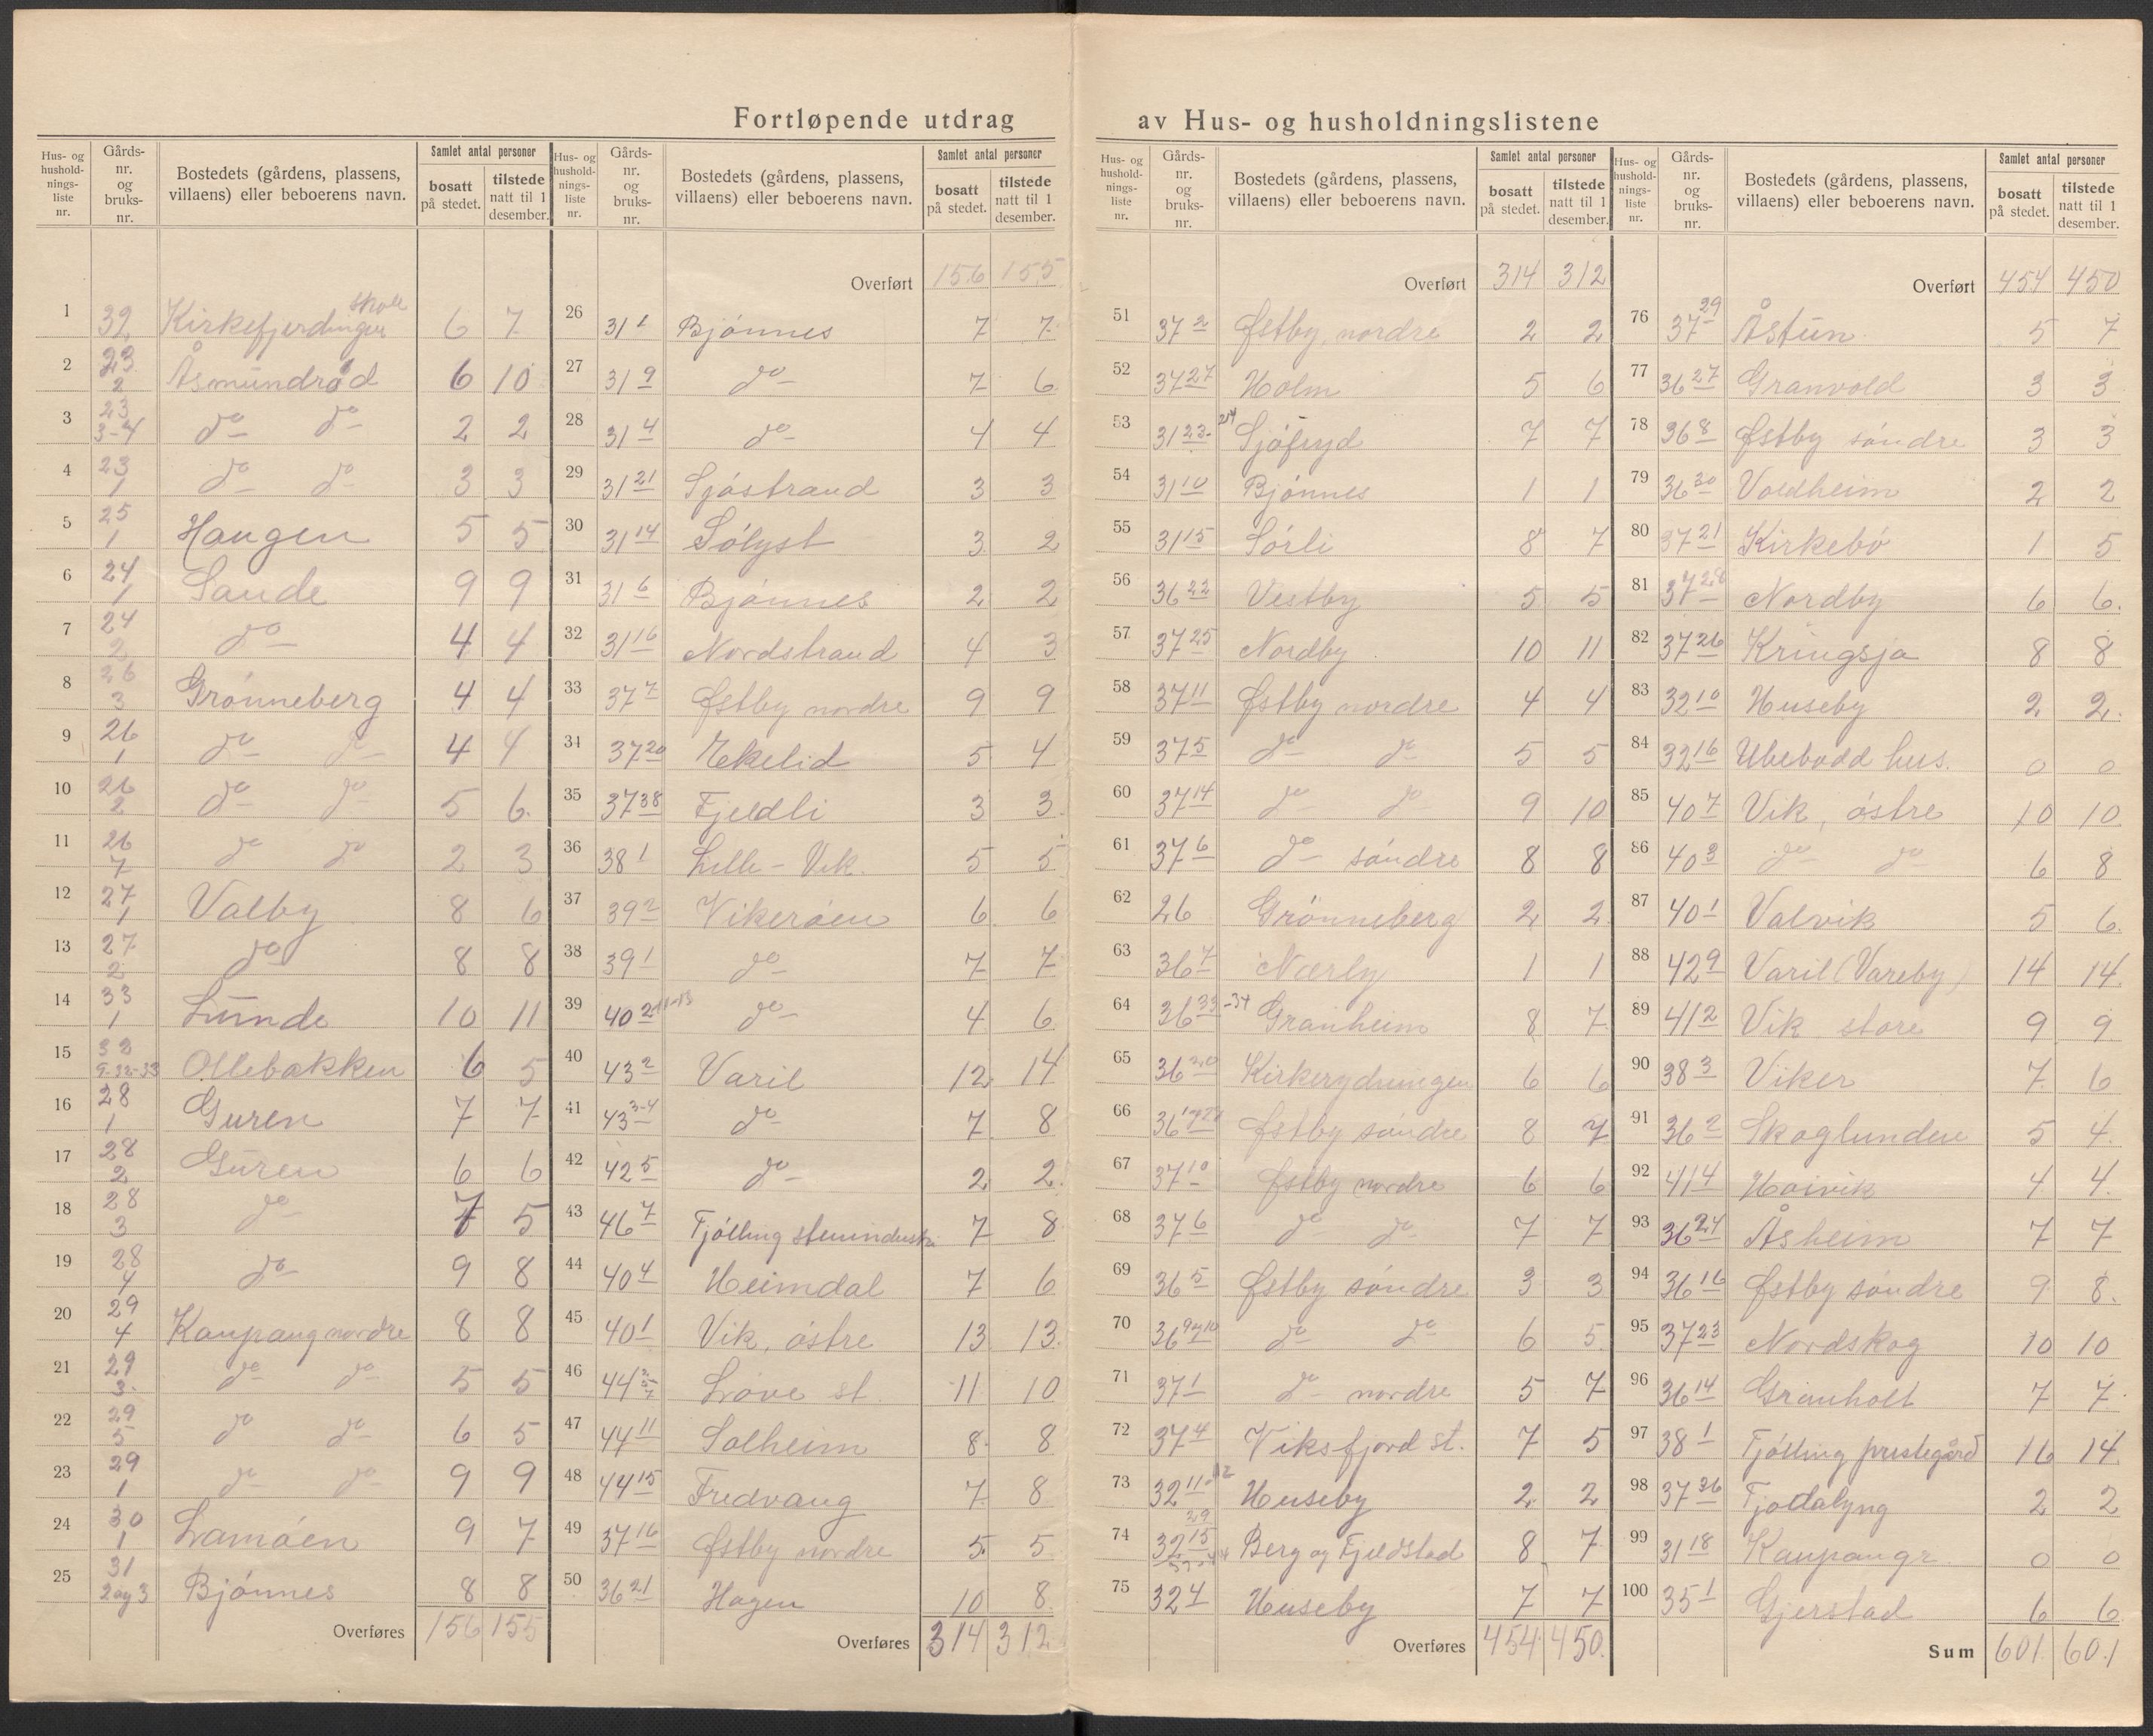 Fortløpende utdrag av Hus- og husholdningslistene
Hus- og husholdnings-liste nr. Gårds-nr. og bruks-nr. Bostedets (gårdens, plassens, villaens) eller beboerens navn. Samlet antal personer bosatt på stedet. tilstede natt til 1 desember.
1 32 Kirkefjerdingen skole 6 7
2 23 2 Åsmundrød 6 10
3 23 3-4 do do 2 2
4 23 1 do do 3 3
5 25 1 Haugen 5 5
6 24 1 Sande 9 9
7 24 2 do 4 4
8 26 3 Grønneberg 4 4
9 26 1 do do 4 4
10 26 2 do do 5 6
11 26 7 do do 2 3
12 27 1 Valby 8 6
13 27 2 do 8 8
14 33 1 Lunde 10 11
15 Ollebakken 6 5
16 28 1 Guren 7 7
17 28 2 Guren 6 6
18 28 3 do 7 5
19 28 4 do 9 8
20 29 4 Kaupang nordre 8 8
21 29 3 do do 5 5
22 29 5 do do 6 5
23 29 1 do do 9 9
24 30 1 Lamøen 9 7
25 31 2 og 3 Bjønnes 8 8
Overføres 156 155
Hus- og husholdnings-liste nr. Gårds-nr. og bruks-nr. Bostedets (gårdens, plassens, villaens) eller beboerens navn. Samlet antal personer bosatt på stedet. tilstede natt til 1 desember.
Overført 156 155
26 31 1 Bjønnes 7 7
27 31 9 do 7 6
28 31 4 do 4 4
29 31 21 Sjøstrand 3 3
30 31 14 Sølyst 3 2
31 31 6 Bjønnes 2 2
32 31 16 Nordstrand 4 3
33 37 7 Østby nordre 9 9
34 37 20 Ekelid 5 4
35 37 38 Fjeldli 3 3
36 38 1 Lille-Vik. 5 5
37 39 2 Vikerøen 6 6
38 39 1 do 7 7
39 40 do 4 6
40 43 2 Varil 12 14
41 43 3-4 do 7 8
42 42 5 do 2 2
43 46 7 Tjølling stenindustri 7 8
44 40 4 Heimdal 7 6
45 40 1 Vik, østre 13 13
46 44 Løve st. 11 10
47 44 11 Solheim 8 8
48 44 15 Fredvang 7 8
49 37 16 Østby nordre 5 5
50 36 21 Hagen 10 8
Overføres 314 312
Hus- og husholdnings-liste nr. Gårds-nr. og bruks-nr. Bostedets (gårdens, plassens, villaens) eller beboerens navn. Samlet antal personer bosatt på stedet. tilstede natt til 1 desember.
Overført 314 312
51 37 2 Østby, nordre 2 2
52 37 27 Holm 5 6
53 31 23-24 Sjøfryd 7 7
54 31 10 Bjønnes 1 1
55 31 15 Sørli 8 7
56 36 22 Vestby 5 5
57 37 25 Nordby 10 11
58 37 11 Østby nordre 4 4
59 37 5 do do 5 5
60 37 14 do do 9 10
61 37 6 do søndre 8 8
62 26 Grønneberg 2 2
63 36 7 Nærby 1 1
64 36 33-34 Granheim 8 7
65 36 20 Kirkerydningen 6 6
66 36 Østby søndre 8 7
67 37 10 Østby nordre 6 6
68 37 6 do do 7 7
69 36 5 Østby søndre 3 3
70 36 9 og 10 do do 6 5
71 37 1 do nordre 5 7
72 37 4 Viksfjord st. 7 5
73 32 11-12 Huseby 2 2
74 32 15 Berg og Fjeldstad 8 7
75 32 4 Huseby 7 7
Overføres 454 450
Hus- og husholdnings-liste nr. Gårds-nr. og bruks-nr. Bostedets (gårdens, plassens, villaens) eller beboerens navn. Samlet antal personer bosatt på stedet. tilstede natt til 1 desember.
Overført 454 450
76 37 29 Åstun 5 7
77 36 27 Granvold 3 3
78 36 8 Østby søndre 3 3
79 36 30 Voldheim 2 2
80 37 21 Kirkebø 1 5
81 37 28 Nordby 6 6
82 37 26 Kringsjå 8 8
83 32 10 Huseby 2 2
84 32 16 Ubebodd hus. 0 0
85 40 7 Vik, østre 10 10
86 40 3 do do 6 8
87 40 1 Valvik 5 6
88 42 9 Varil (Vareby) 14 14
89 41 2 Vik store 9 9
90 38 3 Viker 7 6
91 36 2 Skoglunden 5 4
92 41 4 Høivik 4 4
93 36 24 Åsheim 7 7
94 36 16 Østby søndre 9 8
95 37 23 Nordskog 10 10
96 36 14 Granholt 7 7
97 38 1 Tjølling prestegård 16 14
98 37 36 Tjodalyng 2 2
99 31 18 Kaupangr. 0 0
100 35 1 Gjerstad 6 6
Sum 601 601